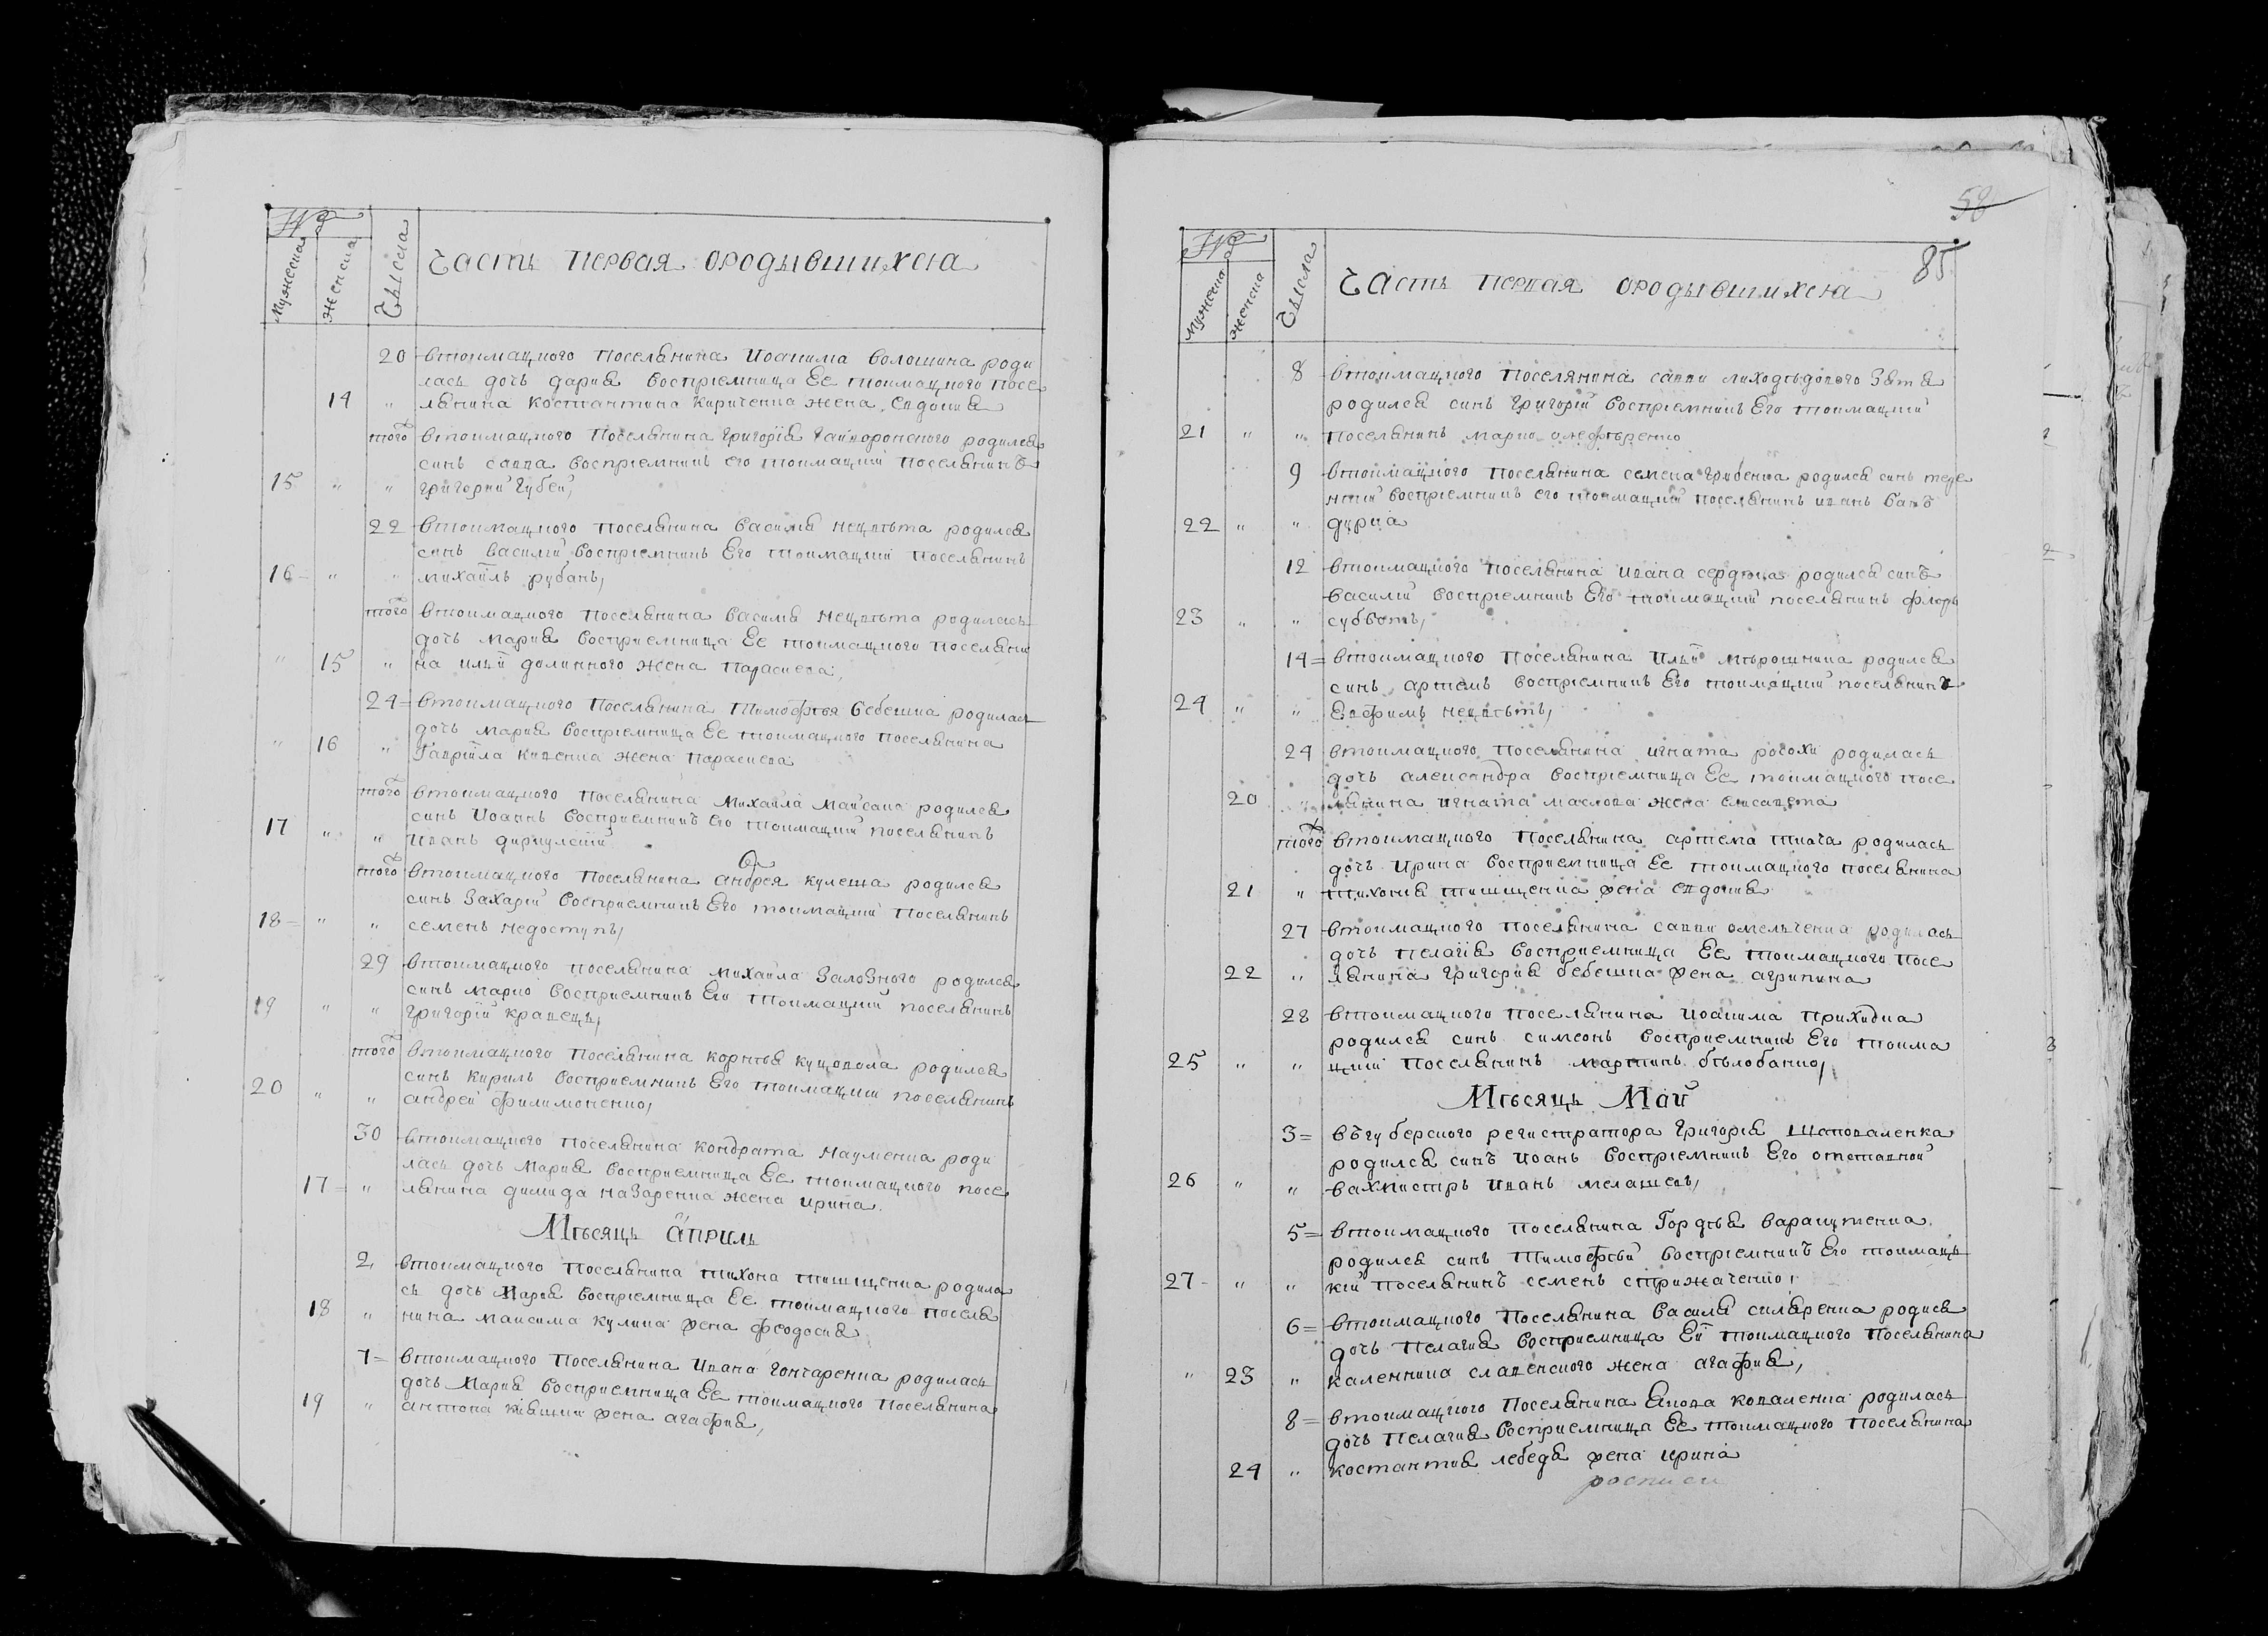 №
Мужеска
женска
Чысла
Часть первая ородывшихся
20 втокмацкого поселянина Иоакима волошина роди
лась дочь дария восприемница Ее токмацкого посе
14 " лянина костантина кириченка жена Евдокия
того втокмацкого поселянина григорія гайворонского родился
синь савва восприемникъ его токмацкий поселянинъ
15 " " григорий губеи,
22 втокмацкого поселянина василя нецвѣта родился
синь василий восприемникъ Его токмацкий поселянинъ
16 " " михайль рубанъ,
того втокмацкого поселянина василя нецвѣта родилась
дочь мария восприемница Ее токмацкого поселяни
" 15 " на ильи долинного жена параскева,
24 = втокмацкого поселянина Тимофѣя бебешка родилась
дочь мария восприемница Ее токмацкого поселянина
" 16 " Гавріила кивенка жена параскева
того втокмацкого поселянина михаила майсака родился
синь Иоаннъ восприемникъ Его токмацкий поселянинъ
17 " " Иванъ
того втокмацкого поселянина андрея кулеша родился
синь Захарій восприемникъ Его токмацкий поселянинъ
18 = " " семенъ недоступъ,
29 втокмацкого поселянина михаила Залозного родился
синь марко восприемникъ Его токмацкий поселянинъ
19 " " григорій кравецъ,
того втокмацкого поселянина корнѣя куцовола родился
синь кирилъ восприемникъ Его токмацкий поселянинъ
20 " " андрей филимоненко,
30 втокмацкого поселянина кондрата науменка роди
лась дочь мария восприемница Ее токмацкого посе
17 = " лянина димида назаренка жена ирина.
Мѣсяцъ априль
2, втокмацкого поселянина тихона тищенка родила
сь дочь Мария восприемница Ее токмацкого поселя
18 " нина максима кулика жена феодосия
7 = втокмацкого поселянина Ивана гончаренка родилась
дочь Мария восприемница Ее токмацкого поселянина
19 " антона жена агафия,
58
85
№
мужеска
женска
Чысла
Часть первая ородывшихся
8 втокмацкого поселянина савви лиходѣдового Зятя
родился синь григорій восприемникъ Его токмацкий
21 " " поселянинъ марко онефѣренко
9 втокмацкого поселянина семена грибенка родился синь тере
нтий восприемникъ его токмацкий поселянинъ иванъ бан
22 " " дурка
12 втокмацкого поселянина ивана сердюка родился синъ
василий восприемникъ Его токмацкий поселянинъ флоръ
23 " " субботъ,
14 = втокмацкого поселянина Ильи мѣрошника родился
синь артемъ восприемникъ Его токмацкий поселянинъ
24 " " Евфимъ нецвѣтъ,
24 втокмацкого поселянина игната рогохи родилась
дочь александра восприемница Ее токмацкого посе
20 " лянина игната маслова жена елисавета
того втокмацкого поселянина артема ткача родилась
дочь Ирина восприемница Ее токмацкого поселянина
21 " тихона тищенка жена евдокия
27 втокмацкого поселянина савви омельченка родилась
дочь пелагия восприемница Ее токмацкого посе
22 " лянина григория бебешка жена агрипина
28 втокмацкого поселянина Иоакима приходка
родился синь симеонъ восприемникъ Его токма
25 " " цкий поселянинъ мартинъ бѣлобанко,
Мѣсяцъ Май
3 = въгуберского регистратора григория Шаповаленка
родился синъ Иоанъ восприемникъ Его отставной
26 " " вахмистръ Иванъ мелашевъ,
5 = втокмацкого поселянина Гордѣя варакутенка
родился синъ Тимофѣй восприемникъ Его токмацъ
27 - " " кій поселянинъ семенъ стрижаченко,
6 = втокмацкого поселянина василя силяренка родися
дочь пелагия восприемница Ей токмацкого поселянина
" 23 " каленника славенского жена агафия,
8 = втокмацкого поселянина Якова коваленка родилась
дочь пелагия восприемница Ее токмацкого поселянина
24 " костантия лебедя жена ирина
росписи